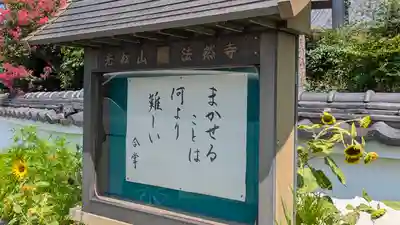 光松山 法然寺
まかせる
ことは
何より
難しい
合掌